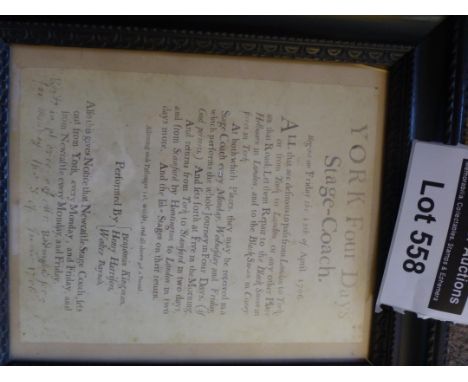 YORK Four Days
Stage-Coach.
Begins on Friday the 12th of April 1706.
ALL that are desirous to pass from London to York,
or from York to London, or any other Place
on that Road; Let them Repair to the Black Swan in
Holbourn in London, and to the Black Swan in Coney-
street in York.
At both which Places they may be received in a
Stage Coach every Monday, Wednesday and Friday,
which performs the whole Journey in Four Days, (if
God permits.) And sets forth at Five in the Morning.
And returns from York to Stamford in two days,
and from Stamford by Huntington to London in two
days more. And the like Stages on their return.
Allowing each Passenger 14l. weight, and all above 3d. a Pound.
Performed By
Benjamin Kingman,
Henry Harrison,
Walter Baynes,
Also this gives Notice that Newcastle Stage Coach, sets
out from York, every Monday, and Friday, and
from Newcastle every Monday, and Friday.
Auctions
Lot 558